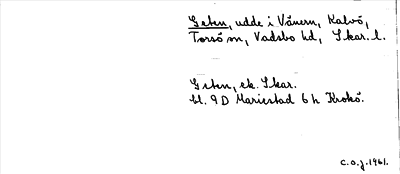 Geten, udde i Vänern, Kalvö,
Torsö sn, Vadsbo hd, Skar. l.
Geten, ek. Skar.
bl. 9 D Mariestad 6 h Krokö.
C.O.J. 1961.